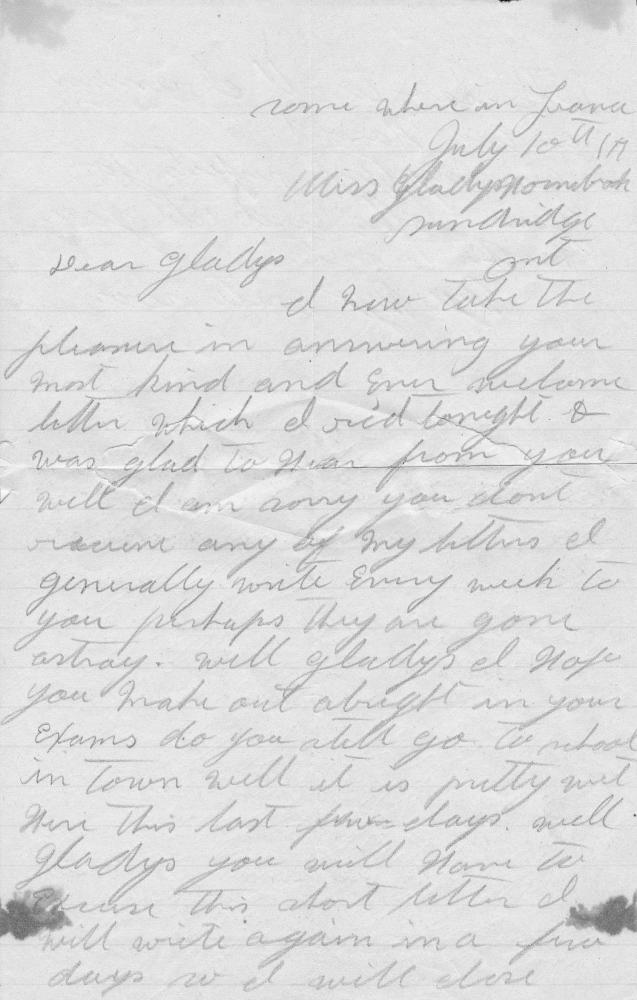 some where in France
July 10th 17
Miss Gladys
Sundridge
ont
Dear Gladys
I now take the
pleasure in answering your
most kind and Ever welcome
letter which I rec'd tonight &
was glad to Hear from you
well I am sorry you dont
receive any of My letters I
generally write Every week to
you perhaps they are gone
astray. well Gladys I Hope
you Make out alright in your
Exams do you still go to school
in Town well it is pretty wet
Here this last few days. well
Gladys you will Have to
Excuse this short letter I
will write again in a few
days so I will close